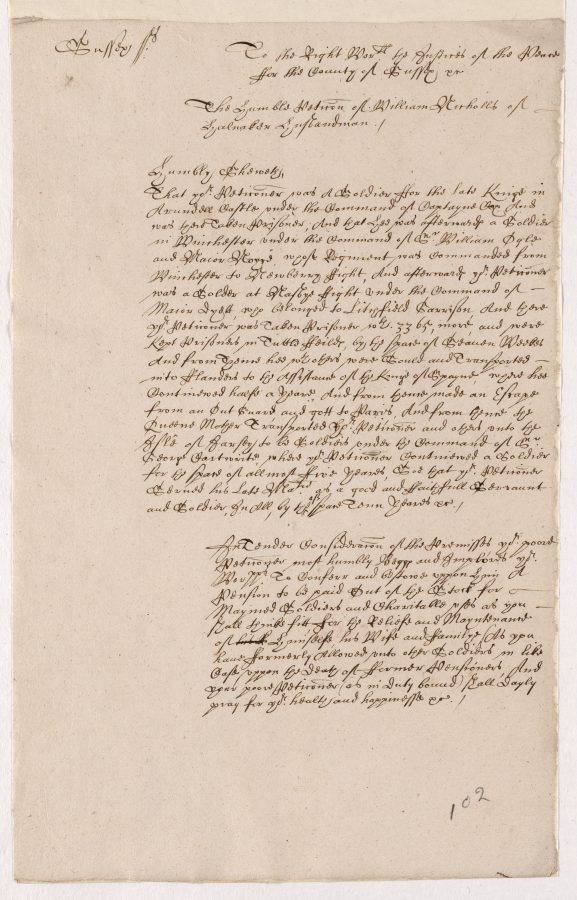 Sussex ss.
To the Right Wor:ll the Justices of the Peace
for the County of Sussex &c
The Humble Peticon of William Nicholls of
Halnaker Husbandman./
Humbly Sheweth,
That yo:r Peticoner was A Soldier for the late Kinge in
Arundell Castle under the Command of Captayne And
was there Taken Prisoner, And that hee was afterwards a Soldier
in Winchester under the Command of S:r William Ogle
and Maior whose Regiment was Commanded from
Winchester to Newberry fight And afterwards yo:r Peticoner
was a Solder at Nasbye fight under the Command of
Maior who belonged to Litchfield Garrison, And there
yo:r Peticoner was Taken Prisoner w:th more, and were
kept Prisoners in Tuttle Feilds, by the space of Seaven Weekes
And from thence hee w:th others were Sould and Transported
into Flanders to the Assistance of the Kinge of Spayne, where hee
Continewed halfe a Yeare, And from thence made an Escape
from an Out Guard and gott to Paris, And from thence the
Queene Mother Transported yo:r Peticoner and others unto the
Isle of Garsey to be Soldiers under the Command of S:r
George Cartwrite where yo:r Peticoner Continewed a Soldier
for the space of allmost five Yeares, Soe that yo:r Peticoner
Served his Late Ma:tie as a good and faithfull Servaunt
and Soldier, In All by the space Tenn Yeares &c./
In Tender Consideracon of the Premisses yo:r poore
Peticoner most humbly Beggs and Implores yo:r
Wor:pps To Conferr and bestowe uppon him A
Pension to be paid Out of the Stock for
Maymed Soldiers and Charitable uses as you
shall thinke fitt For the Reliefe and Mayntenance
of himselfe his Wife and family, As you
have formerly Allowed unto other Soldiers in like
Case uppon the Death of Former Pensioners, And
your poore Peticoner (as in Duty bound) shall Dayly
pray for yo:r health and happinesse &c./
102